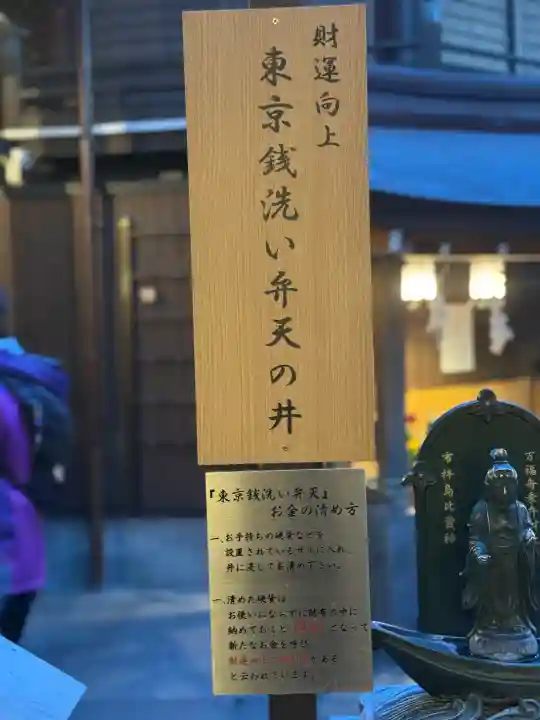 財運向上
東京銭洗い弁天の井
『東京銭洗い弁天』
お金の清め方
一、お手持ちの硬貨などを
設置されているザルに入れ、
井に浸してお清め下さい。
一、清めた硬貨は
お使いにならずに財布の中に
納めておくと となって
新たなお金を呼び
がある
と云われています。
市杵島比賣神
万福舟乗弁